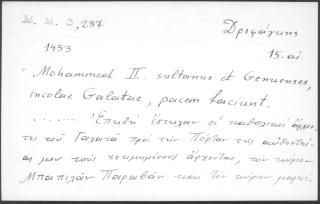 M. M. 3, 287
Δριφάγκης
1453
15. αἰ.
Mohammed II. sultanus et Genuenses,
incolae Galatae, pacem faciunt.
....... Ἐπειδὴ ἔστειλαν οἱ καθολικοὶ ἄρχον-
τες τοῦ Γαλατᾶ πρὸς τὴν Πόρταν τῆς αὐθεντεί-
ας μου τοὺς τετιμημένους ἄρχοντας, τὸν κύριον
Μπαπιλᾶν Παραβᾶν καὶ τὸν κύριον